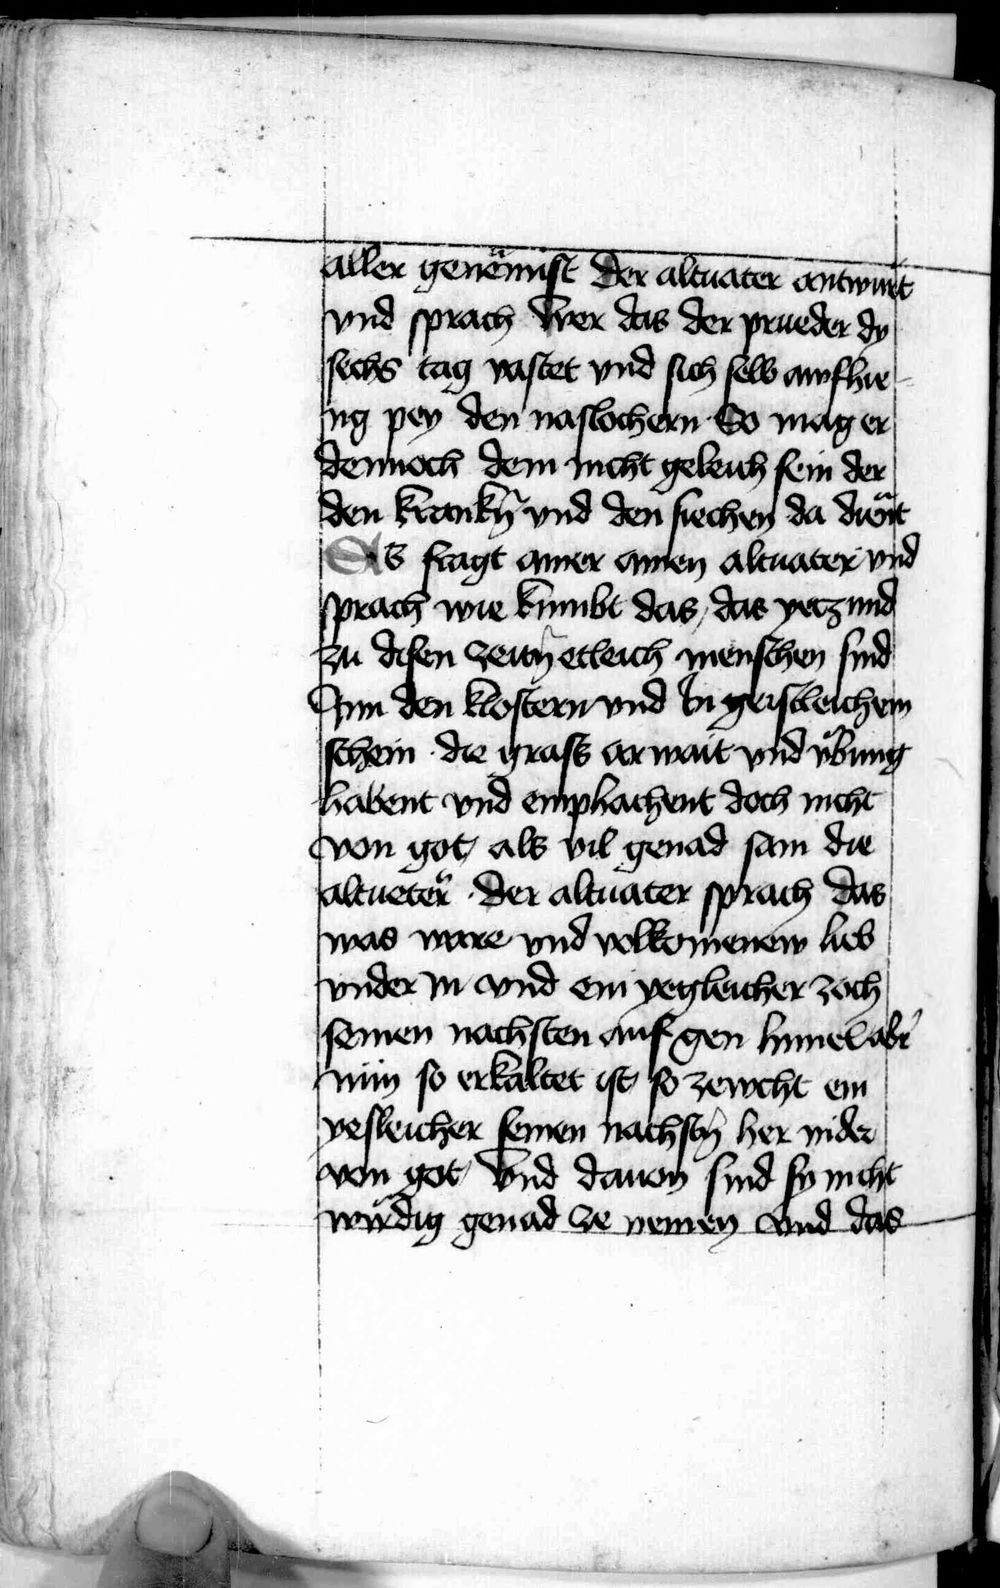 aller genëmist Der altuater antwurt
vnd sprach Wer das der prueder dy
sechs tag vastet vnd sich selb awfhie-
ng pey den naslochern So mag er
dennoch dem nicht geleich sein der
den krankn̄ vnd den siechen da dient
Es fragt ainer ainen altuater vnd
sprach wie kumbt das, das yetzund
zu disen zeitn̄ etleich menschen sind
Inn den klostern vnd in geistleichem
schein · die grass arwait vnd vͤbung
habent vnd emphachent doch nicht
von got, als vil genad sam die
altueter · Der altuater sprach das
was ware vnd volkomenew lieb
vnder in vnd ein yegleicher zoch
seinen nachsten auf gen himel abr̄
nun so erkaltet ist, so zewcht ein
yesleicher seinen nachstn̄ her nider
von got, Vnd dauon sind sy nicht
wirdig genad ze nemen vnd das